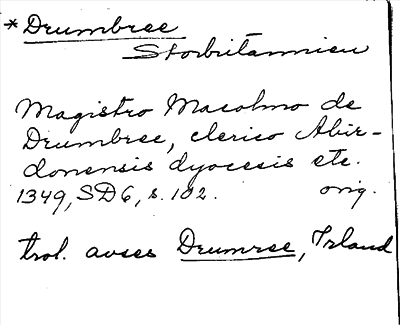 *Drumbree
Storbritannien
Magistro Macolmo de
Drumbree, clerico Abir-
donensis dyocesis etc.
1349, SD6, s. 102. orig.
trol. avses Drumree, Irland